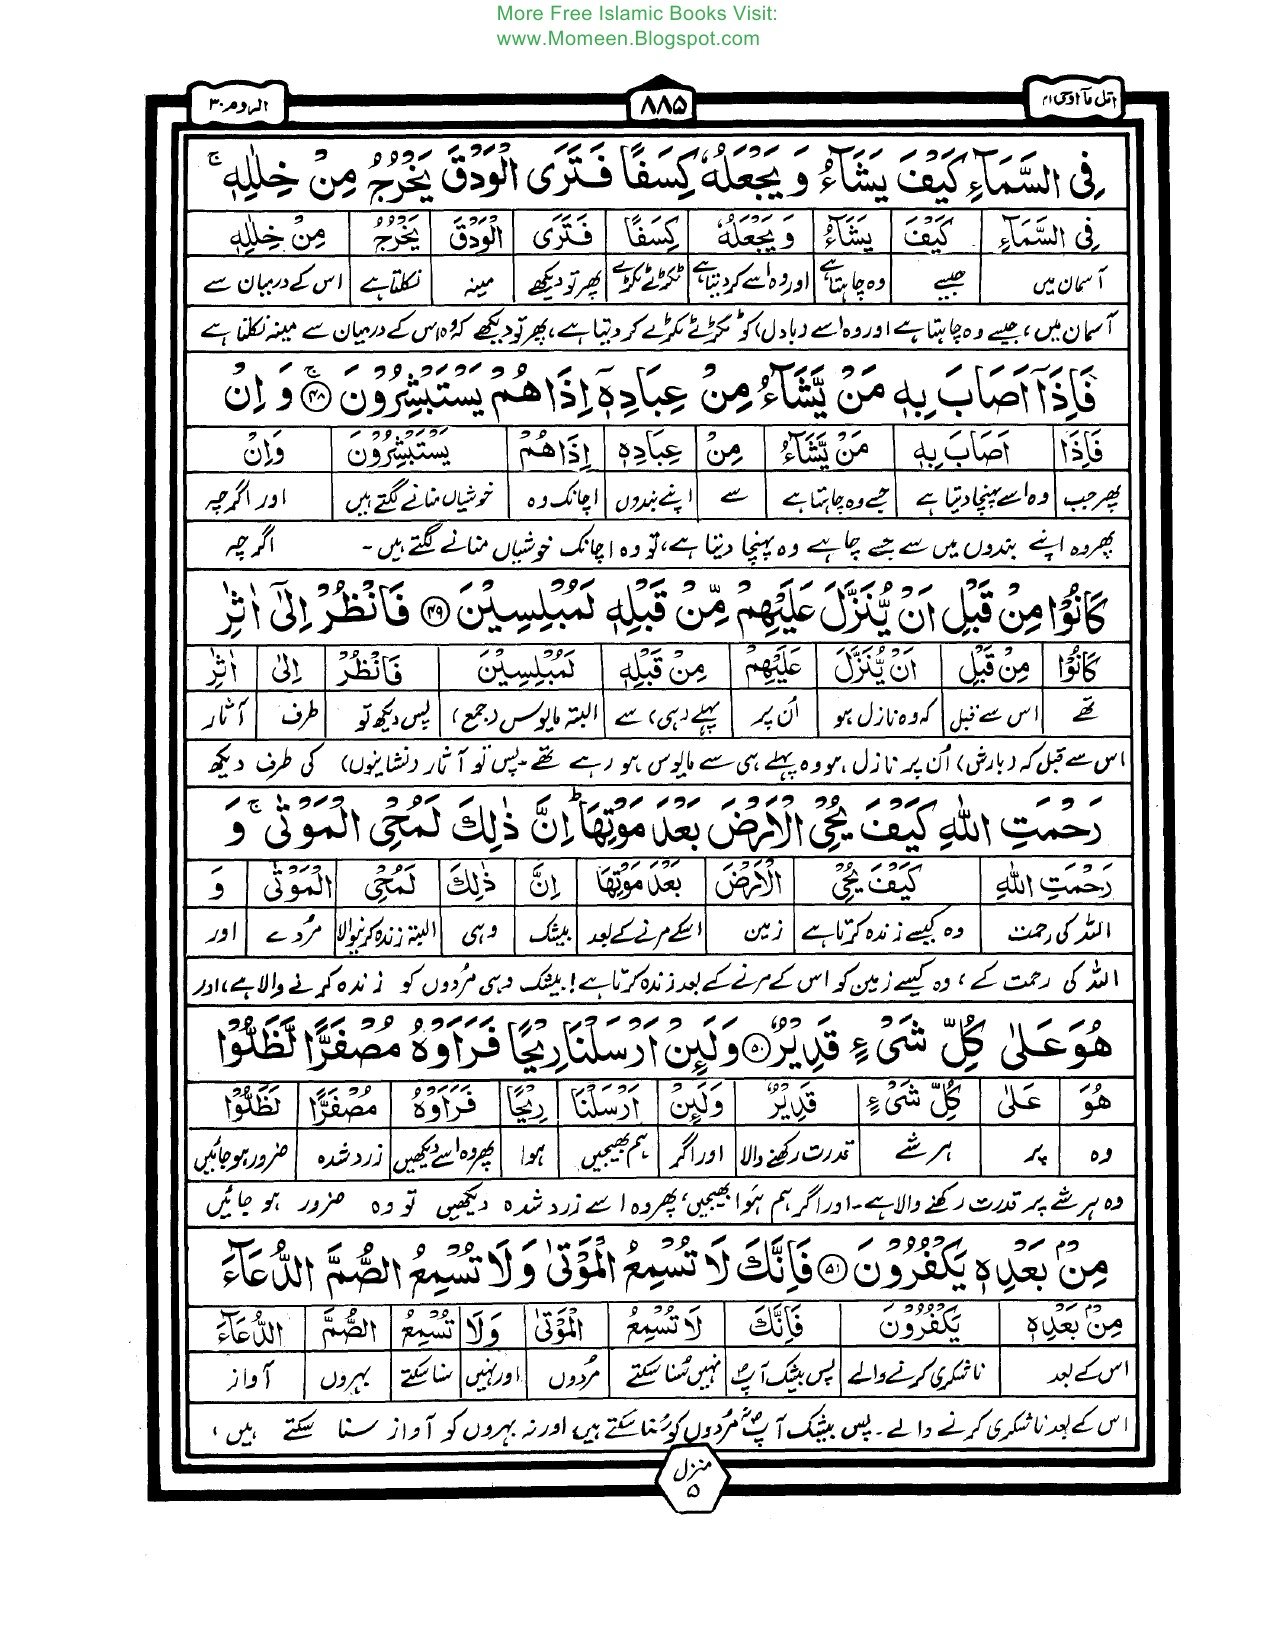 More Free Islamic Books Visit:
www.Momeen.Blogspot.com
اتل مآ اوحی ۲۱ ۸۸۵ الروم ۳۰
فِی السَّمَآءِ كَیْفَ یَشَآءُ وَ یَجْعَلُهٗ كِسَفًا فَتَرَی الْوَدْقَ یَخْرُجُ مِنْ خِلٰلِهٖ ۚ
فِی السَّمَآءِ كَیْفَ یَشَآءُ وَ یَجْعَلُهٗ كِسَفًا فَتَرَی الْوَدْقَ یَخْرُجُ مِنْ خِلٰلِهٖ
آسمان میں جیسے وہ چاہتا ہے اور وہ اسے کر دیتا ہے ٹکڑے ٹکڑے پھر تو دیکھے مینہ نکلتا ہے اس کے درمیان سے
آسمان میں، جیسے وہ چاہتا ہے اور وہ اسے (بادل) کو ٹکڑے ٹکڑے کر دیتا ہے، پھر تو دیکھے کہ وہ اس کے درمیان سے مینہ نکلتا ہے
فَاِذَاۤ اَصَابَ بِهٖ مَنْ یَّشَآءُ مِنْ عِبَادِهٖۤ اِذَا هُمْ یَسْتَبْشِرُوْنَ ۚ۴۸ وَ اِنْ
فَاِذَا اَصَابَ بِهٖ مَنْ یَّشَآءُ مِنْ عِبَادِهٖ اِذَا هُمْ یَسْتَبْشِرُوْنَ وَاِنْ
پھر جب وہ اسے پہنچا دیتا ہے جسے وہ چاہتا ہے سے اپنے بندوں اچانک وہ خوشیاں منانے لگتے ہیں اور اگرچہ
پھر وہ اپنے بندوں میں سے جسے چاہے وہ پہنچا دیتا ہے، تو وہ اچانک خوشیاں منانے لگتے ہیں۔ اگرچہ
كَانُوْا مِنْ قَبْلِ اَنْ یُّنَزَّلَ عَلَیْهِمْ مِّنْ قَبْلِهٖ لَمُبْلِسِیْنَ ۴۹ فَانْظُرْ اِلٰۤی اٰثٰرِ
كَانُوْا مِنْ قَبْلِ اَنْ یُّنَزَّلَ عَلَیْهِمْ مِنْ قَبْلِهٖ لَمُبْلِسِیْنَ فَانْظُرْ اِلٰی اٰثٰرِ
تھے اس سے قبل کہ وہ نازل ہو اُن پر پہلے (ہی) سے البتہ مایوس (جمع) پس دیکھ تو طرف آثار
اس سے قبل کہ (بارش) اُن پر نازل ہو وہ پہلے ہی سے مایوس ہو رہے تھے۔ پس تو آثار (نشانیوں) کی طرف دیکھ
رَحْمَتِ اللّٰهِ كَیْفَ یُحْیِ الْاَرْضَ بَعْدَ مَوْتِهَا ؕ اِنَّ ذٰلِكَ لَمُحْیِ الْمَوْتٰی ۚ وَ
رَحْمَتِ اللّٰهِ كَیْفَ یُحْیِ الْاَرْضَ بَعْدَ مَوْتِهَا اِنَّ ذٰلِكَ لَمُحْیِ الْمَوْتٰی وَ
اللہ کی رحمت وہ کیسے زندہ کرتا ہے زمین اسکے مرنے کے بعد بیشک وہی البتہ زندہ کرنیوالا مُردے اور
اللہ کی رحمت کے، وہ کیسے زمین کو اس کے مرنے کے بعد زندہ کرتا ہے! بیشک وہی مُردوں کو زندہ کرنے والا ہے، اور
هُوَ عَلٰی كُلِّ شَیْءٍ قَدِیْرٌ ۵۰ وَ لَىِٕنْ اَرْسَلْنَا رِیْحًا فَرَاَوْهُ مُصْفَرًّا لَّظَلُّوْا
هُوَ عَلٰی كُلِّ شَیْءٍ قَدِیْرٌ وَلَىِٕنْ اَرْسَلْنَا رِیْحًا فَرَاَوْهُ مُصْفَرًّا لَظَلُّوْا
وہ پر ہر شے قدرت رکھنے والا اور اگر ہم بھیجیں ہوا پھر وہ اسے دیکھیں زرد شدہ ضرور ہو جائیں
وہ ہر شے پر قدرت رکھنے والا ہے۔ اور اگر ہم ہوا بھیجیں، پھر وہ اسے زرد شدہ دیکھیں تو وہ ضرور ہو جائیں
مِنْۢ بَعْدِهٖ یَكْفُرُوْنَ ۵۱ فَاِنَّكَ لَا تُسْمِعُ الْمَوْتٰی وَ لَا تُسْمِعُ الصُّمَّ الدُّعَآءَ
مِنْۢ بَعْدِهٖ یَكْفُرُوْنَ فَاِنَّكَ لَا تُسْمِعُ الْمَوْتٰی وَلَا تُسْمِعُ الصُّمَّ الدُّعَآءَ
اس کے بعد ناشکری کرنے والے پس بیشک آپؐ نہیں سُنا سکتے مُردوں اور نہیں سنا سکتے بہروں آواز
اس کے بعد ناشکری کرنے والے۔ پس بیشک آپؐ مُردوں کو نہیں سُنا سکتے ہیں اور نہ بہروں کو آواز سنا سکتے ہیں،
منزل
۵